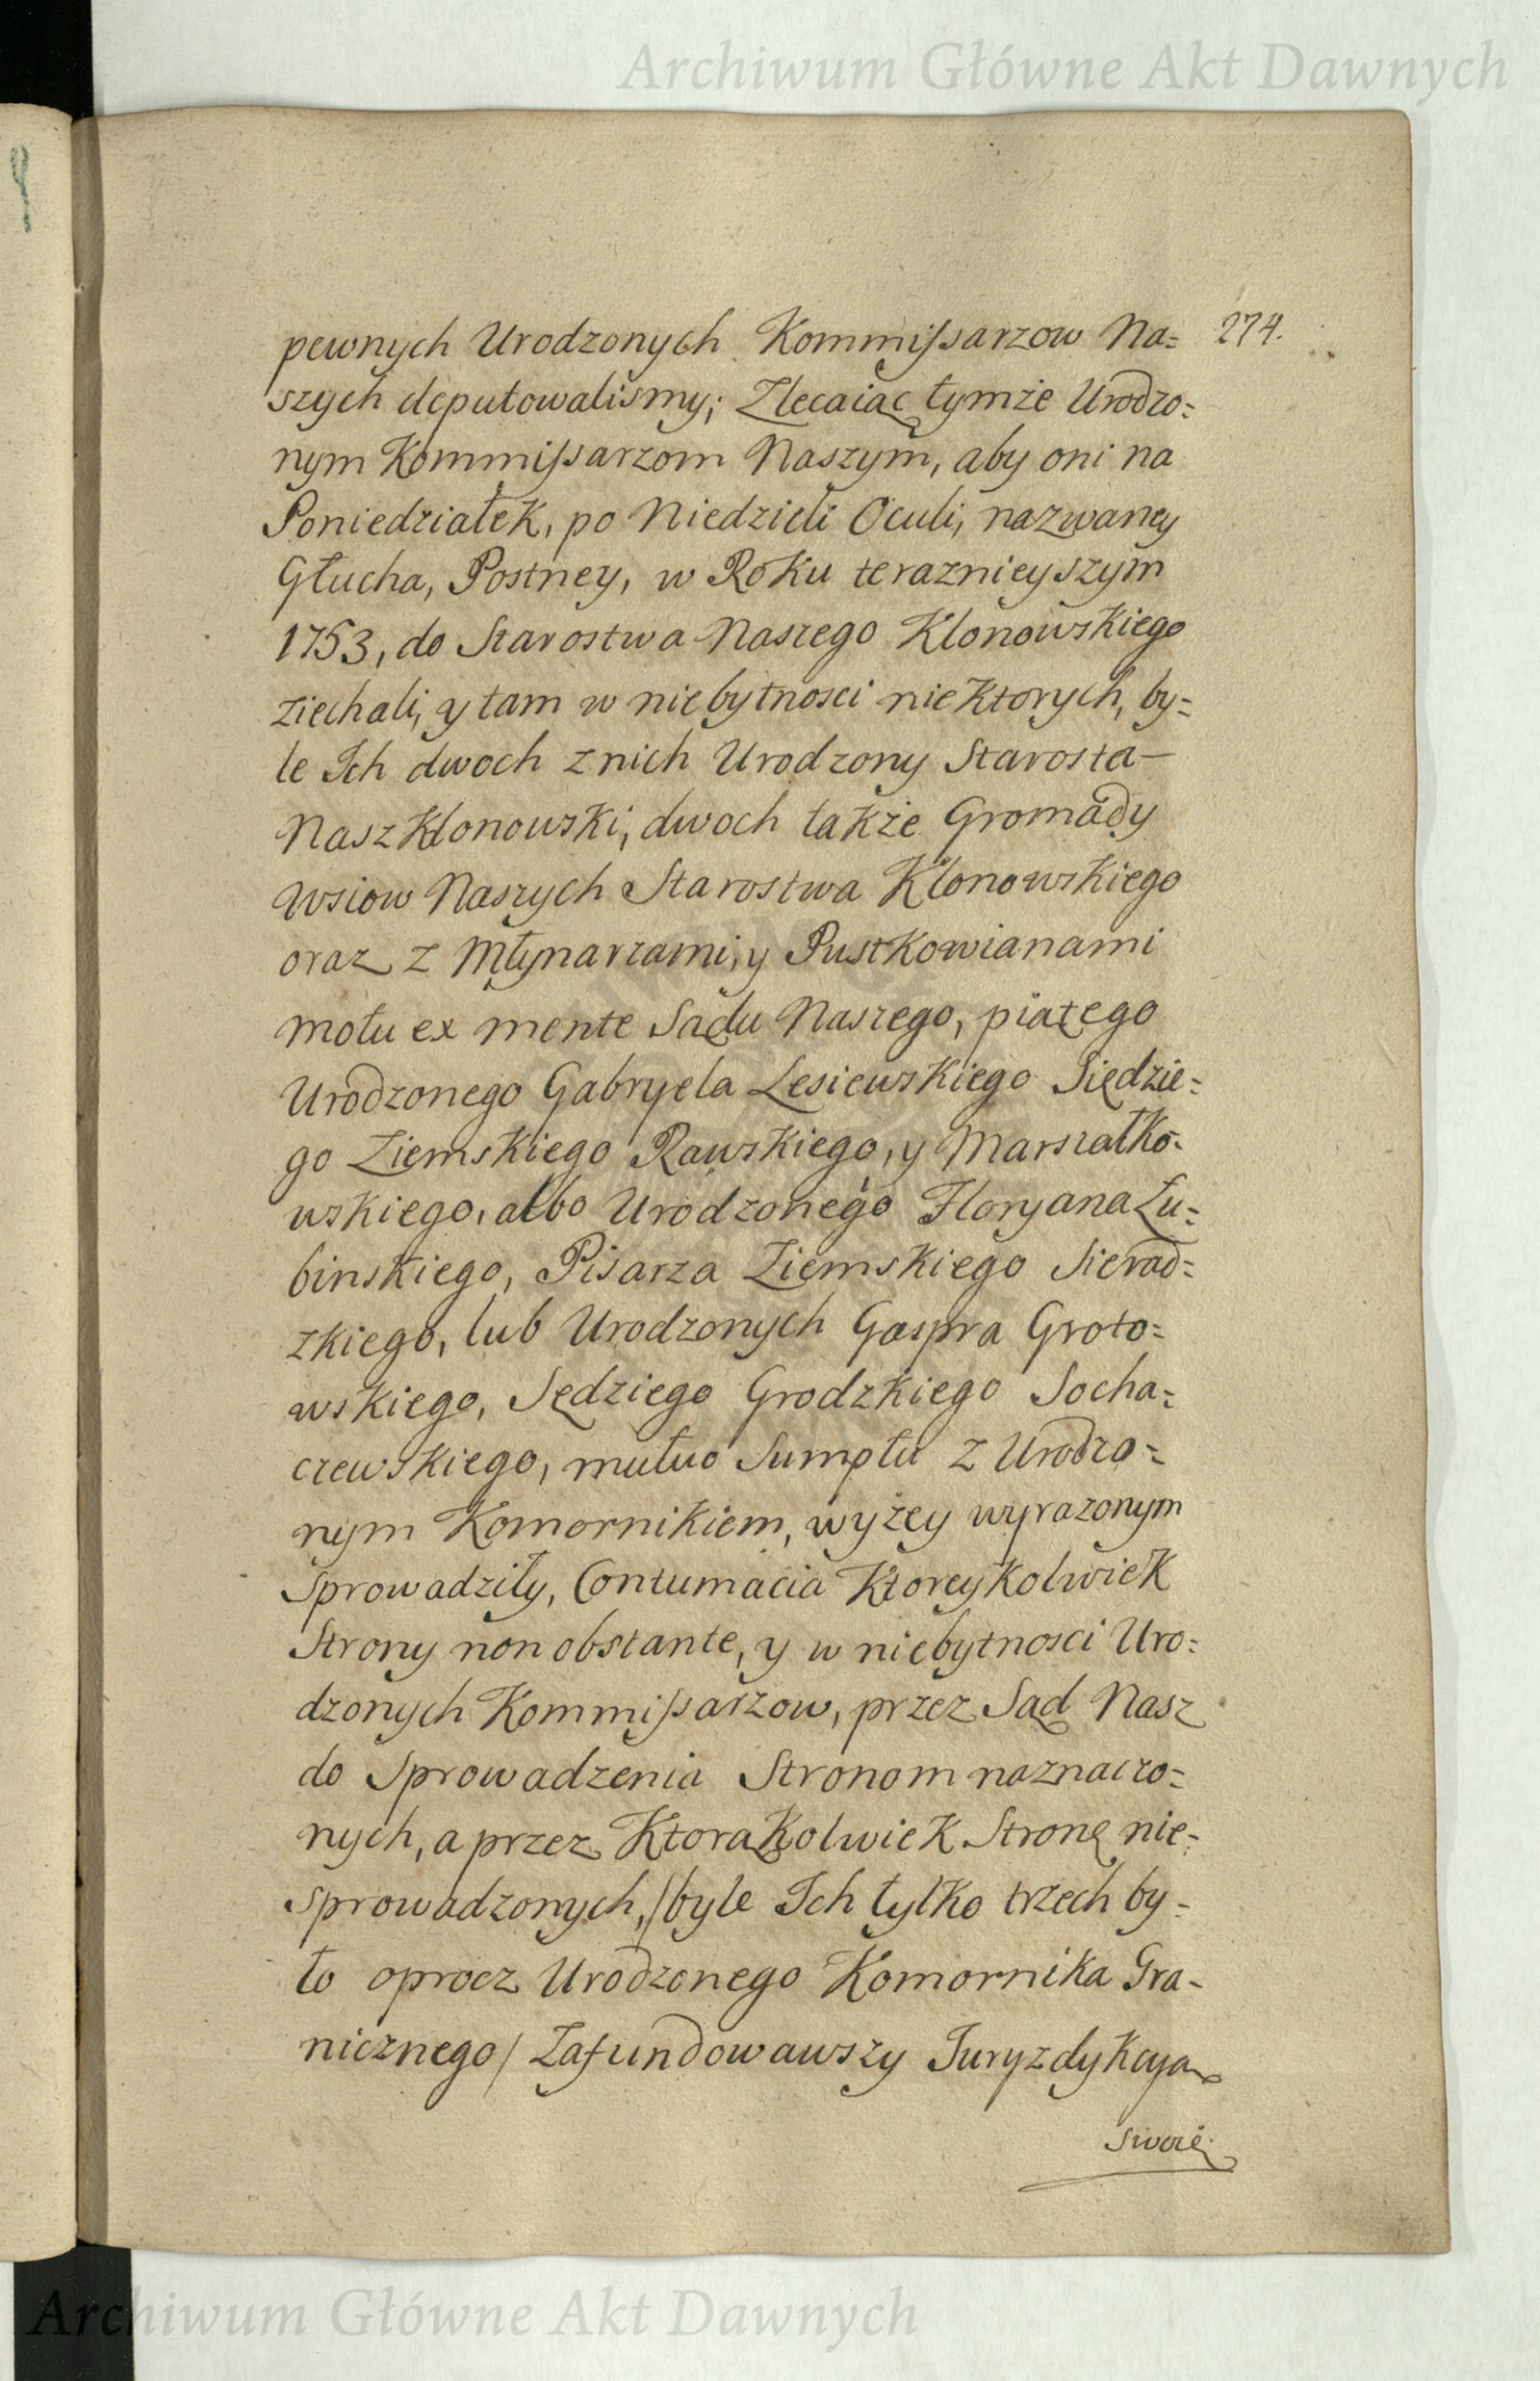 Archiwum Główne Akt Dawnych
pewnych Urodzonych Kommissarzow Na= 274.
szych deputowalismy; Zlecaiąc tymże Urodzo=
nym Kommissarzom Naszym, aby oni na
Poniedziałek, po Niedzieli Oculi, nazwaney
Głucha, Postney, w Roku teraznieyszym
1753, do Starostwa Naszego Klonowskiego
ziechali, y tam w niebytnosci niektorych, by=
le Ich dwoch z nich Urodzony Starosta—
Nasz Klonowski, dwoch także Gromady
Wsiow Naszych Starostwa Klonowskiego
oraz z Młynarzami, y Pustkowianami
motu ex mente Sądu Naszego, piątego
Urodzonego Gabryela Lesiewskiego Siędzie=
go Ziemskiego Rawskiego, y Marszałko=
wskiego, albo Urodzonego Floryana Łu=
binskiego, Pisarza Ziemskiego Sierad=
zkiego, lub Urodzonych Gaspra Groto=
wskiego, Sędziego Grodzkiego Socha=
czewskiego, mutuo Sumptu z Urodzo=
nym Komornikiem, wyżey wyrazonym
Sprowadziły, Contumacia Ktoreykolwiek
Strony non obstante, y w niebytnosci Uro=
dzonych Kommissarzow, przez Sąd Nasz
do Sprowadzenia Stronom naznaczo=
nych, a przez Ktorąkolwiek Stronę nie=
sprowadzonych, /byle Ich tylko trzech by=
ło oprocz Urodzonego Komornika Gra=
nicznego/ Zafundowawszy Juryzdykcyą
Archiwum Główne Akt Dawnych